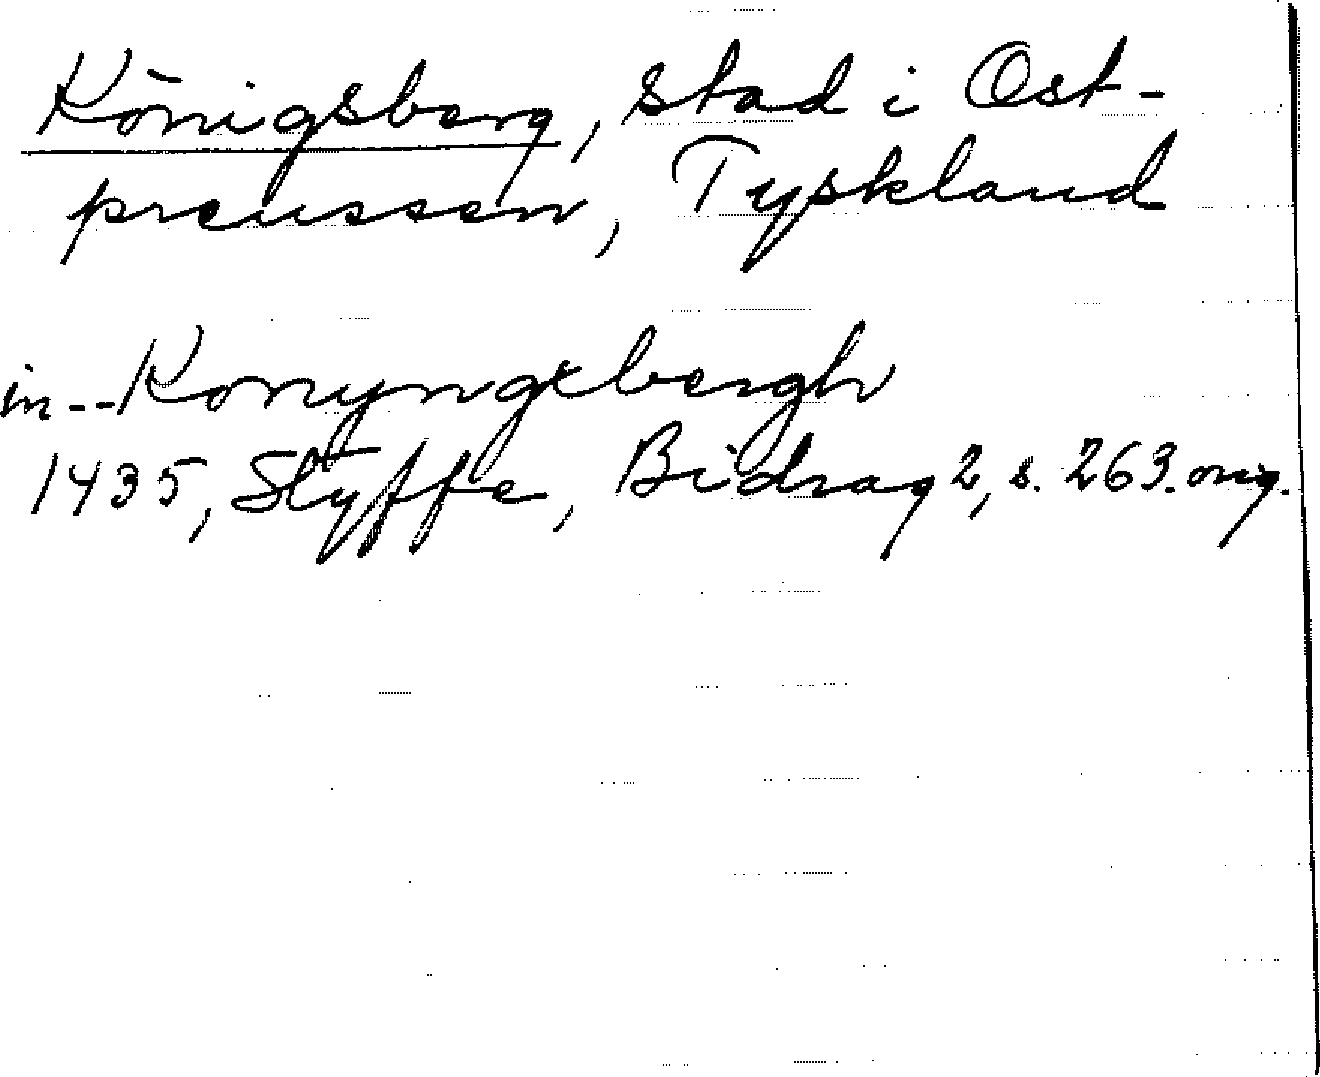 Königsberg, stad i Ost-
preussen, Tyskland
in -- Konyngxbergh
1435, Styffe, Bidrag 2, s. 263. orig.